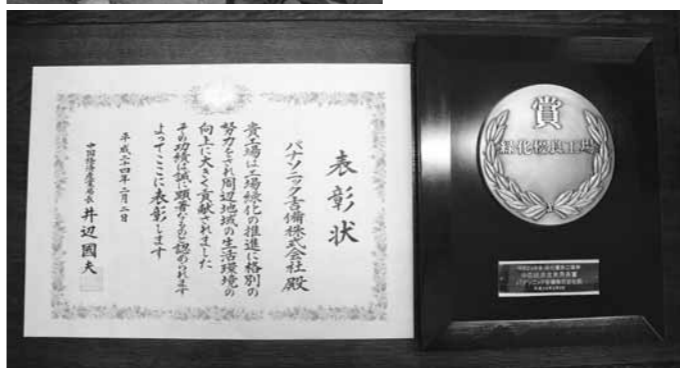 表彰状
パナソニック吉備株式会社殿
貴工場は工場緑化の推進に格別の
努力をされ周辺地域の生活環境の
向上に大きく貢献されました
その功績は誠に顕著なものと認められます
よってここに表彰します
平成二十四年二月二日
中国経済産業局長 井辺國夫
賞
緑化優良工場
中国経済産業局長賞
パナソニック吉備株式会社殿